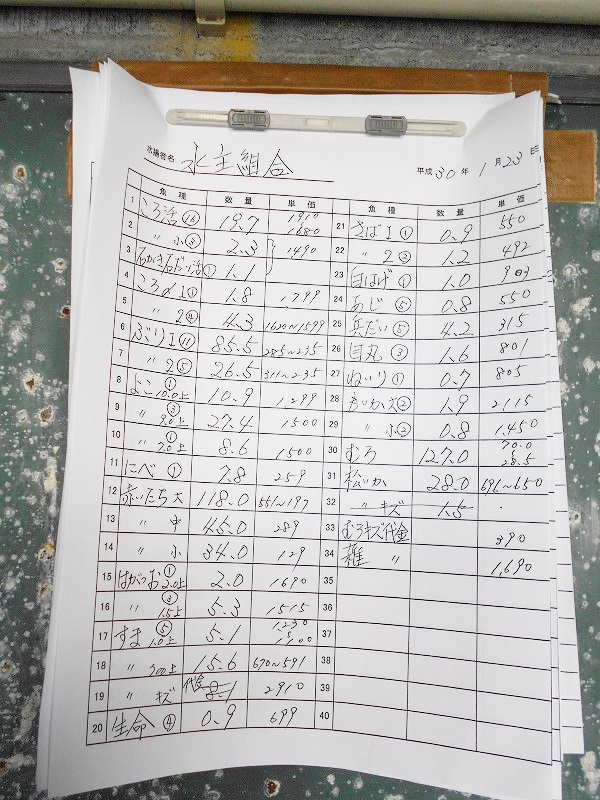 水揚者名 水主組合
平成30年1月23日
魚種 数量 単価
1 ころ活⑯ 19.7 1910 1680
2 〃 小③ 2.3 1490
3 石がき石だい活① 1.1
4 ころ〆1① 1.8 1799
5 〃 2④ 4.3 1620~1599
6 ぶり1⑪ 85.5 285~235
7 〃 2⑤ 26.5 311~235
8 よこ① 10.0上 10.9 1299
9 〃③ 9.0上 27.4 1500
10 〃① 7.0上 8.6 1500
11 にべ① 7.8 259
12 赤いたち大 118.0 551~197
13 〃 中 45.0 289
14 〃 小 34.0 129
15 はがつお① 2.0上 2.0 1690
16 〃③ 1.5上 5.3 1515
17 すま⑤ 1.0上 5.1 1,230 ~ 1,100
18 〃 700上 15.6 670~591
19 〃 キズ 代金 2910
20 生命④ 0.9 699
魚種 数量 単価
21 さば1① 0.9 550
22 〃 2② 1.2 492
23 白はげ① 1.0 903
24 あじ⑤ 0.8 550
25 兵だい⑤ 4.2 315
26 目丸③ 1.6 801
27 ねいり① 0.7 805
28 あいか大② 1.9 2,115
29 〃 小② 0.8 1,450
30 むろ 127.0 70.0 ~ 28.5
31 松いか 28.0 696~650
32 〃 キズ 1.5
33 むろキズ代金 390
34 雑 〃 1,690
35
36
37
38
39
40